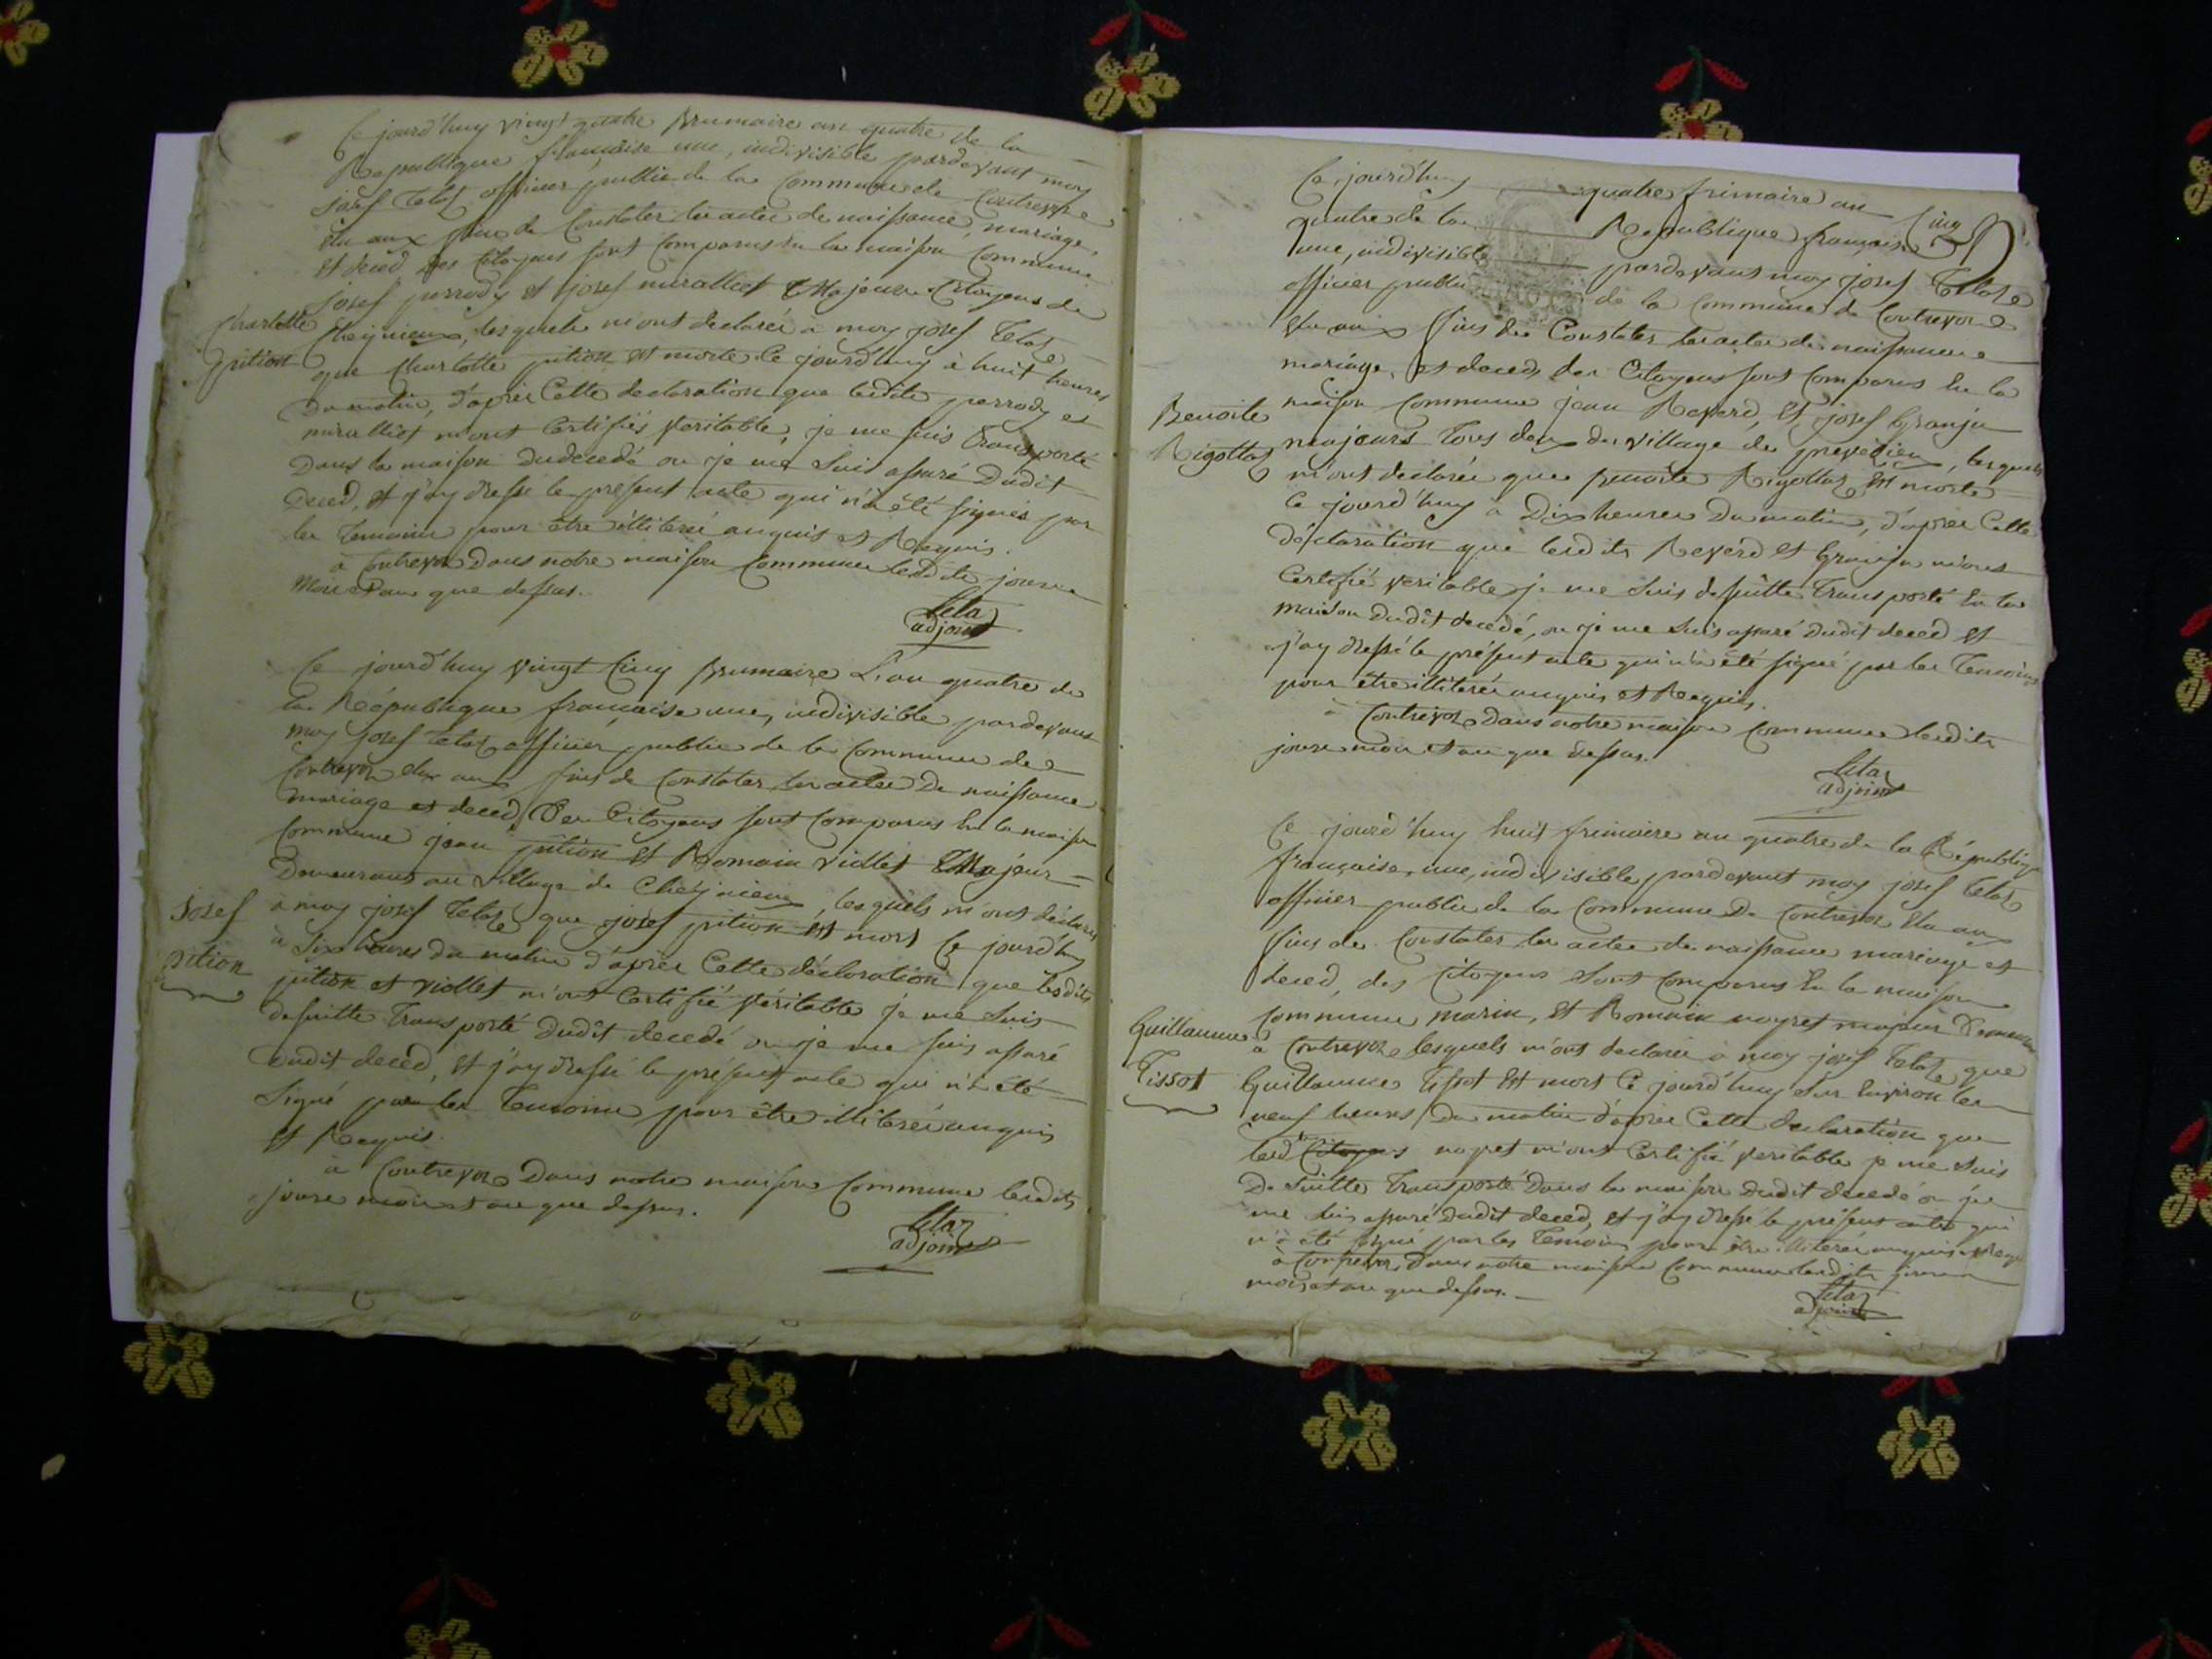 Ce jourd'huy vingt quatre Brumaire an quatre de la
République française une, indivisible pardevant moy
josef Tetaz officier public de la Commune de Contrevoz
élu aux fins de Constater les actes de naissance, mariage,
et deced des Citoyens sont Comparus en la maison Commune
josef perrody et josef miralliet Majeur Citoyens de
Cheignieux, lesquels m'ont declaréé à moy josef Tetaz
Charlotte
pition
que Charlotte pition est morte Ce jourd'huy à huit heures
Du matin, d'après Cette declaration que lesdits perrody et
miralliet m'ont Certifiés veritable, je me suis transporté
Dans la maison dudecedé ou je me suis assuré Dudit
Deced, et j'ay dressé le present acte qui n'a été signés par
les temoins pour être illiteréé enquis et Requis.
à Contrevoz Dans notre maison Commune lesdits jour
Mois et an que dessus.
Tetaz
adjoint
Ce jourd'huy vingt Cinq Brumaire L'an quatre de
la République francaise une, indivisible pardevant
moy josef Tetaz officier public de la Commune de
Contrevoz élu aux fins de Constater les actes De naissance
mariage et deced Des Citoyens sont Comparus En la maison
Commune jean pition et Romain viollet Majeur
Demeurant au village de Cheignieux, lesquels m'ont déclarés
josef
pition
à moy josef Tetaz que josef pition est mort Ce jourd'huy
à Six heures du matin d'après Cette déclaration que lesdits
pition et viollet m'ont Certifié véritable je me suis
desuitte Transporté dudit decedé ou je me suis assuré
dudit deced, et j'ay dressé le présent acte qui n'a été
Signé par les Temoins pour être illiteréé enquis
et Requis.
à Contrevoz Dans notre maison Commune lesdits
jours mois et an que dessus.
Tetaz
adjoint
Cinq
Ce jourd'huy quatre frimaire an
quatre de la République française
une, indivisible pardevant moy josef Tetaz
officier public de la Commune de Contrevoz
élu aux fins de Constater les actes de naissance
mariage, et deceds des Citoyens sont Comparus En la
Benoite
Rigottaz
maison Commune jean Reverd, et josef Granju
majeurs Tous deux du village de preveizieu, lesquels
m'ont declaréé que Benoite Rigottaz est morte
Ce jourd'huy à Dix heures Du matin, d'après Cette
déclaration que lesdits Reverd et Granju m'ont
Certifié veritable je me suis desuitte Transporté En la
maison dudit decedé, ou je me suis assuré dudit deced et
j'ay dressé le présent acte qui n'a été signé par les Temoins
pour être illiteréé enquis et Requis.
à Contrevoz Dans notre maison Commune lesdits
jours mois et an que dessus.
Tetaz
adjoint
Ce jourd'huy huit frimaire an quatre de la Républiq
française, une, indivisible, pardevant moy josef Tetaz
officier public de la Commune De Contrevoz élu aux
fins de Constater les actes de naissance mariage et
deced, des Citoyens sont Comparus En la maison
Commune marin, et Romain noyret majeur Demeurant
Guillaume
Tissot
à Contrevoz lesquels m'ont declaréé à moy josef Tetaz que
Guillaume Tissot est mort Ce jourd'huy sur Environ les
neuf heures Du matin d'après Cette declaration que
lesd Citoyens noyret m'ont Certifié veritable je me suis
De suitte Transporté Dans la maison dudit decedé ou je
me suis assuré dudit deced, et j'ay dressé le présent acte qui
n'a été signé par les Temoins pour être illiteréé enquis et Requ
à Contrevoz Dans notre maison Commune lesdits jours
mois et an que dessus.
Tetaz
adjoint